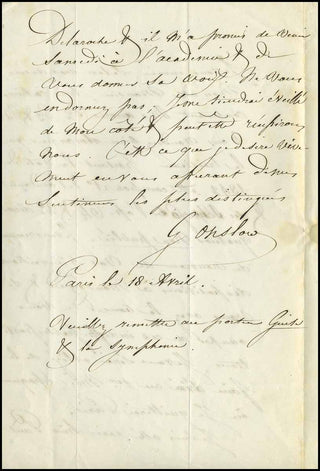 Delaroche & il m'a promis de venir
Samedi à l'academie & de
vous donner sa voix. Ne vous
endormez pas. Je me tiendrai éveillé
de mon coté & peutêtre reussirons
nous. C'est ce que je desire vive-
ment en vous assurant de mes
sentimens les plus distingués
G. Onslow
Paris le 18 Avril.
Veuillez remettre au porteur Guise
& la Symphonie.